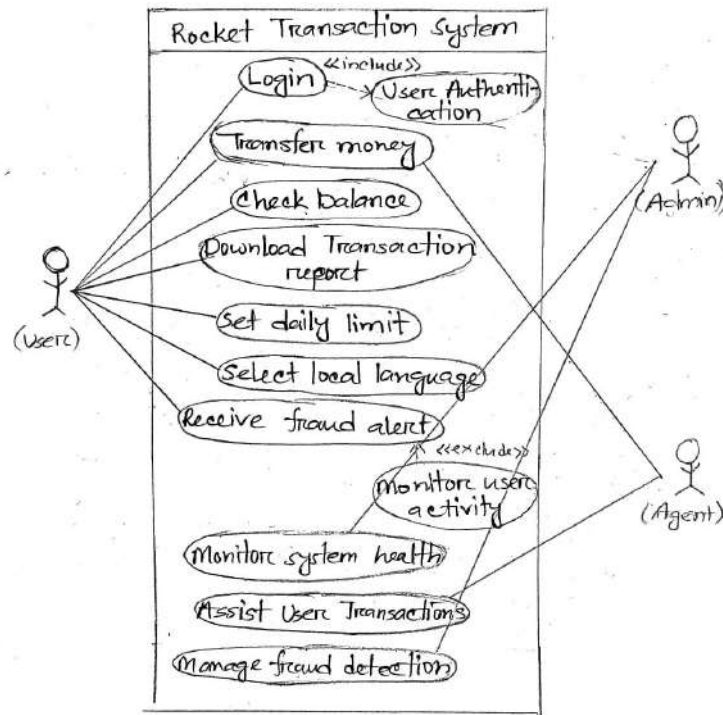 Rocket Transaction System
Login
<<include>>
User Authenti-
cation
Transfer money
Check balance
(Admin)
Download Transaction
report
(User)
Set daily limit
Select local language
Receive fraud alert
<<exclude>>
Monitor user
activity
(Agent)
Monitor system health
Assist User Transactions
Manage fraud detection